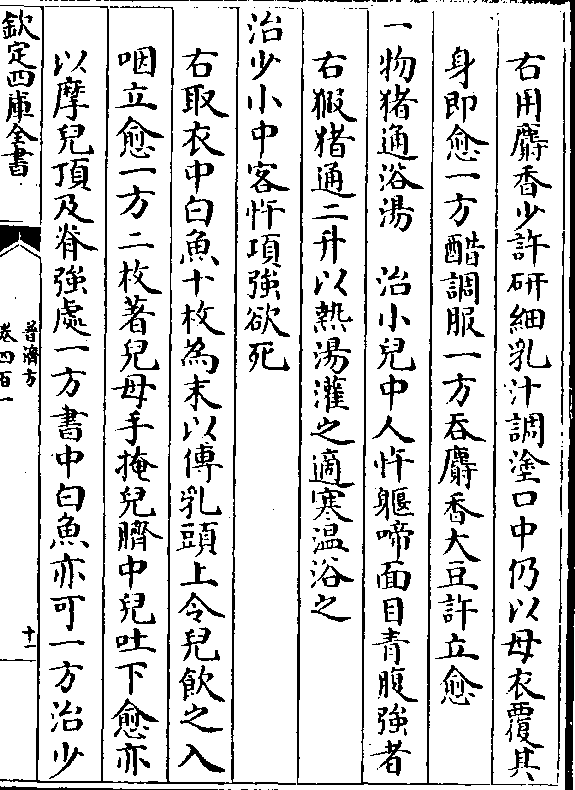 右用麝香少許研細乳汁調塗口中仍以母衣覆其
身即愈一方醋調服一方吞麝香大豆許立愈
一物猪通浴湯　治小兒中人忤軀啼面目青腹強者
右猳猪通二升以熱湯灌之適寒温浴之
治少小中客忤項強欲死
右取衣中白魚十枚為末以傅乳頭上令兒飲之入
咽立愈一方二枚著兒母手掩兒臍中兒吐下愈亦
以摩兒頂及脊強處一方書中白魚亦可一方治少
欽定四庫全書
普濟方
卷四百一
十一